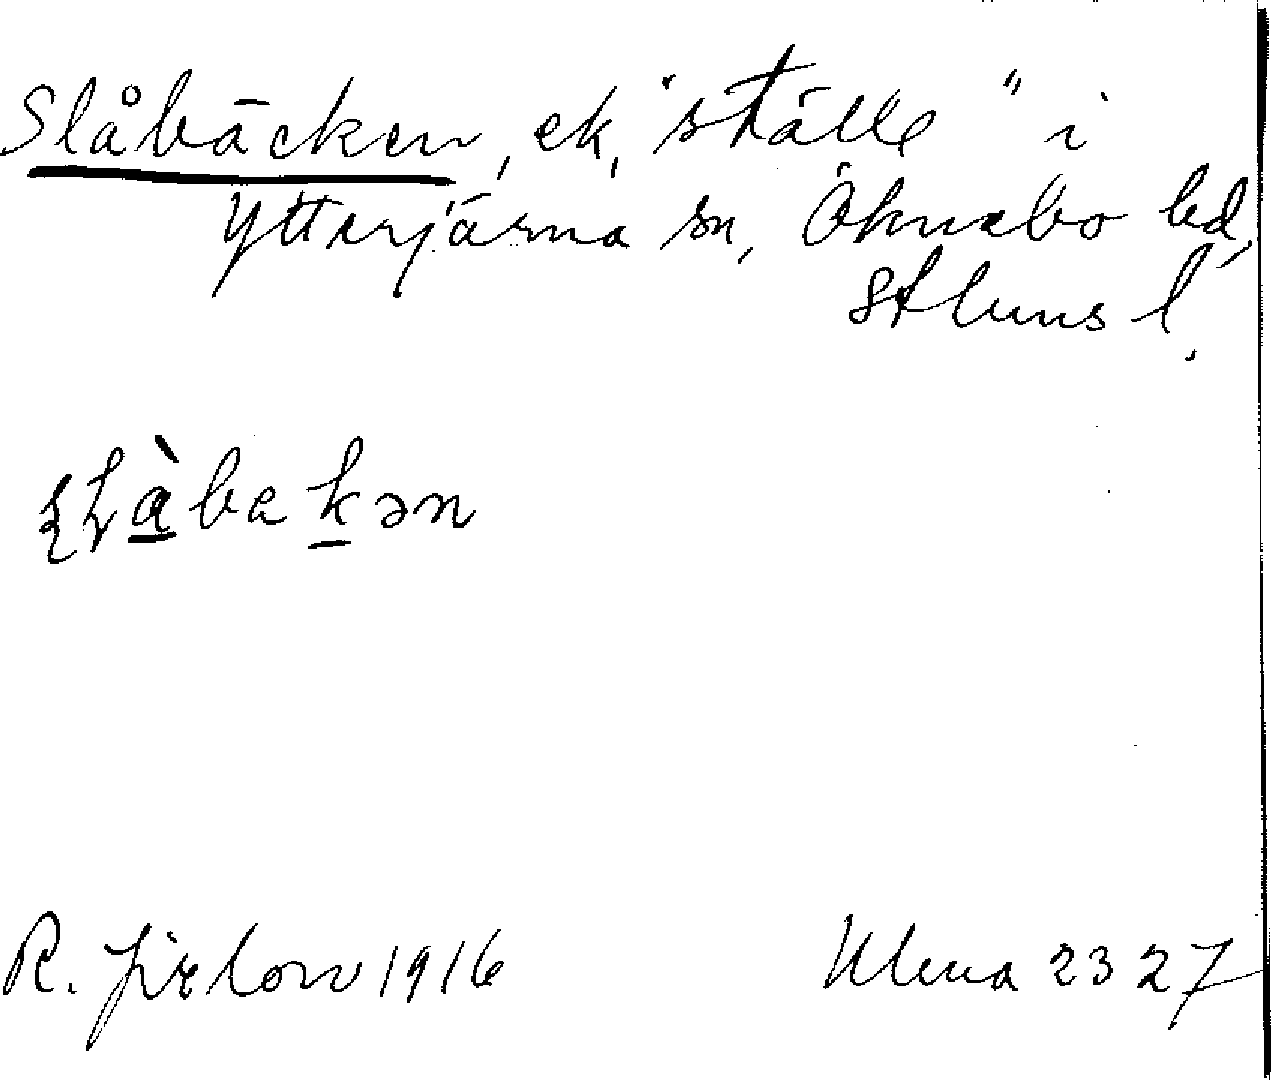 Slåbäcken, ek, "ställe" i
Ytterjärna sn, Öknebo hd,
Sthlms l.
R. Jirlow 1916
Ulma 2327